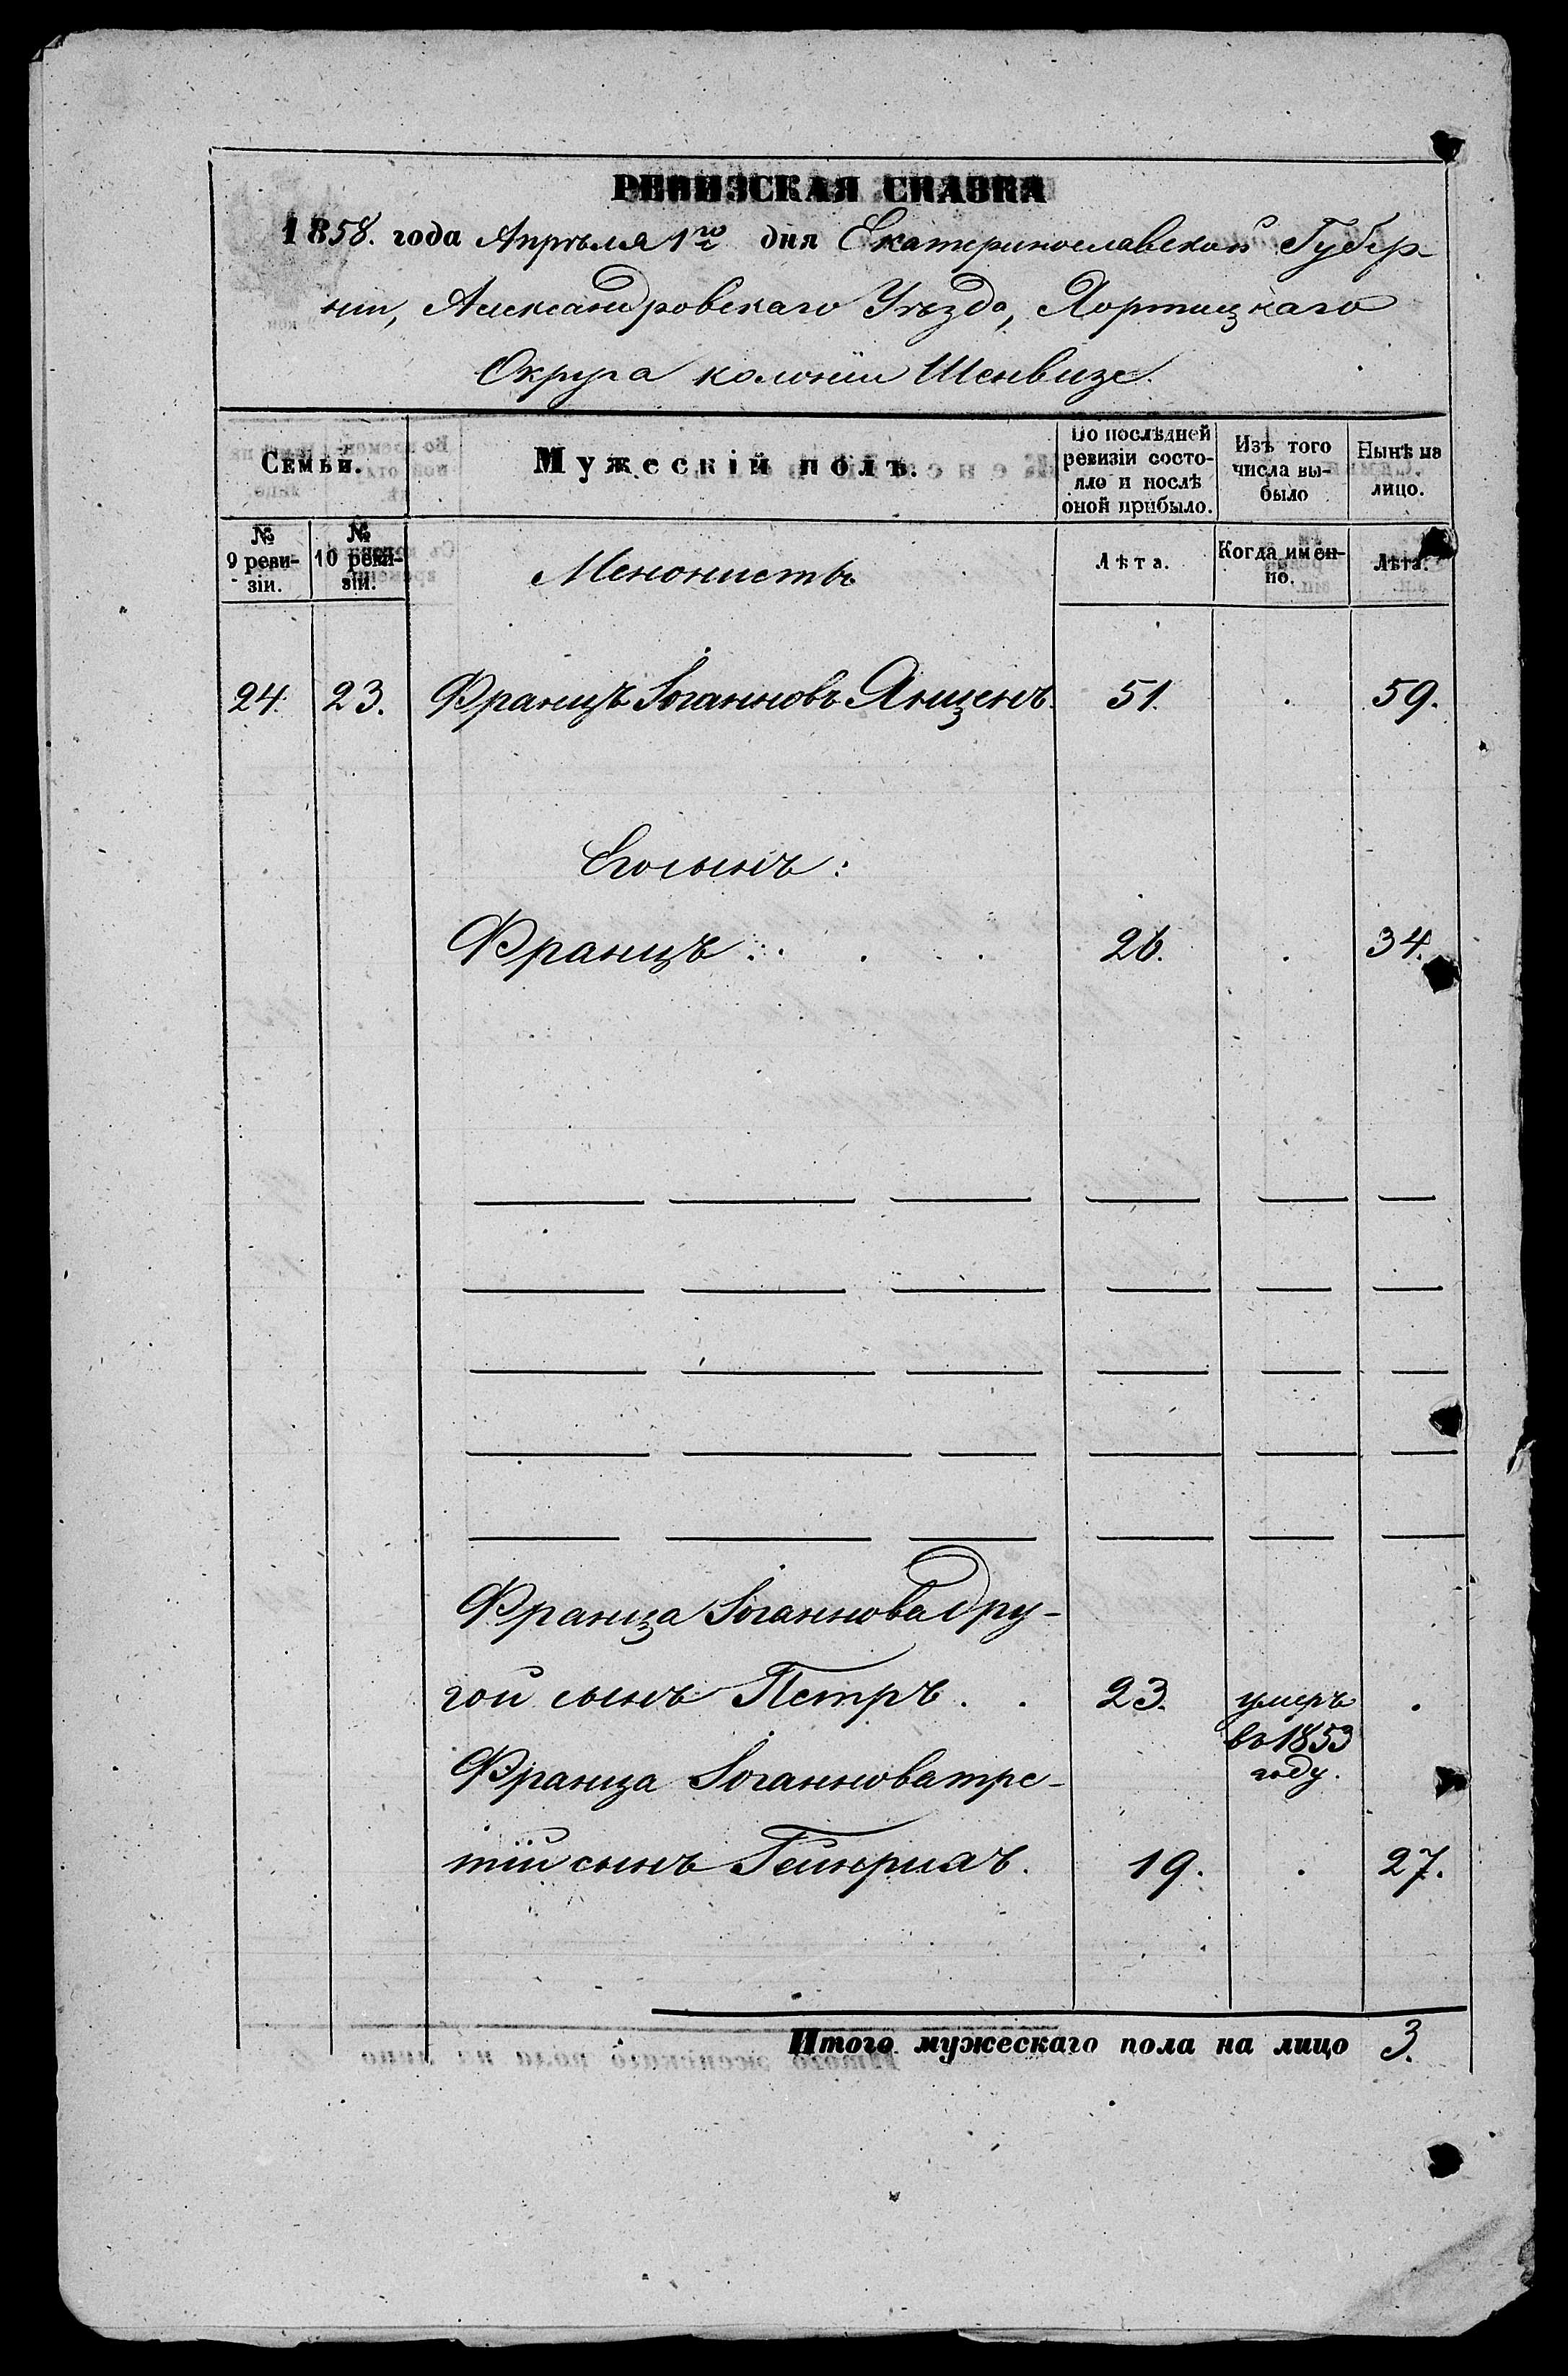 РЕВИЗСКАЯ СКАЗКА
1858. года Апрѣля 1го дня Екатеринославской Губер-
ніи, Александровскаго Уѣзда, Хортицкаго
Округа колоніи Шенвизе.
Семьи.
Мужескій полъ.
По послѣдней
ревизіи состо-
яло и послѣ
оной прибыло.
Изъ того
числа вы-
было
Нынѣ на
лицо.
№
9 реви-
зіи.
№
10 реви-
зіи.
Менонистъ
Лѣта.
Когда имен-
но.
Лѣта.
24. 23. Францъ Іоганновъ Янценъ. 51. . 59.
Его сынъ:
Францъ . . . . 26. . 34.
Франца Іоганнова дру-
гой сынъ Петръ . . 23. умеръ .
во 1853
году.
Франца Іоганнова тре-
тій сынъ Гейнрихъ. 19. . 27.
Итого мужескаго пола на лицо 3.